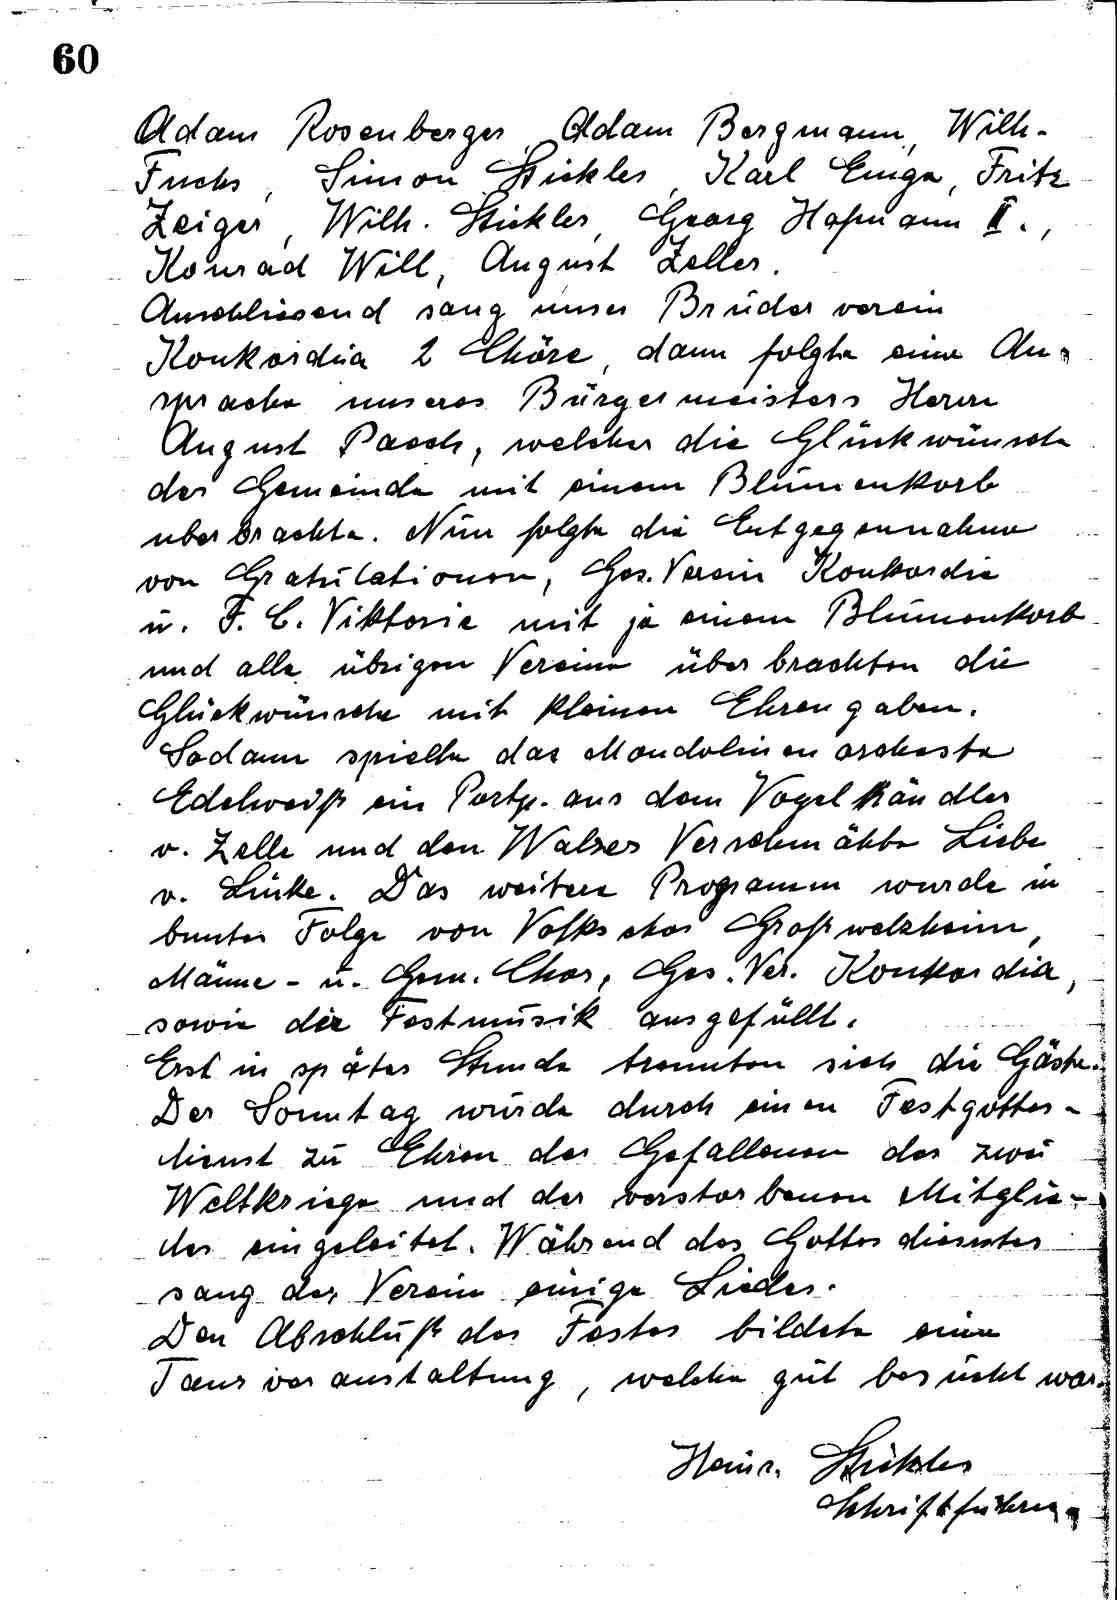 60
Adam Rosenberger, Adam Bergmann, Wilh.
Fuchs, Simon Stickler, Karl Emge, Fritz
Zeiger, Wilh. Stickler, Georg Hofmann II.,
Konrad Will, August Zeller.
Anschliesend sang unser Brüder verein
Konkordia 2 Chöre, dann folgte eine An-
sprache unseres Bürgermeisters Herrn
August Pasch, welcher die Glückwünsche
der Gemeinde mit einem Blumenkorb
uberbrachte. Nun folgte die Entgegennahme
von Gratulationen, Ges. Verein Konkordia
u. F. C. Viktoria mit je einem Blumenkorb
und alle übrigen Vereine überbrachten die
Glückwünsche mit kleinen Ehrengaben.
Sodann spielte das Mandolinenorchester
Edelweiß ein Portp. aus dem Vogelhändler
v. Zelle und den Walzer Verschmähte Liebe
v. Linke. Das weitere Programm wurde in
bunter Folge von Volkschor Großwelzheim,
Männe- u. Gem. Chor, Ges. Ver. Konkordia,
sowie der Festmusik ausgefüllt.
Erst in später Stunde trennten sich die Gäste.
Der Sonntag wurde durch einen Festgottes-
dienst zu Ehren der Gefallenen der zwei
Weltkriege und der verstorbenen Mitglie-
der eingeleitet. Während des Gottesdienstes
sang der Verein einige Lieder.
Den Abschluß des Festes bildete eine
Tanzveranstaltung, welche gut besucht war.
Heinr. Stickler
Schriftführer